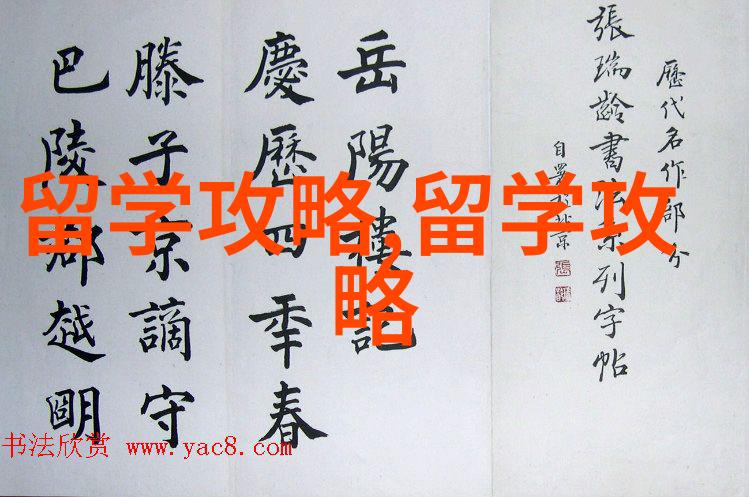 歷代名作部分
張瑞齡書法系列字帖
自署於北京
岳陽樓記
慶歷四年春
滕子京謫守
巴陵郡越明
留学攻略,留学攻
略
书法欣赏 www.yac8.com